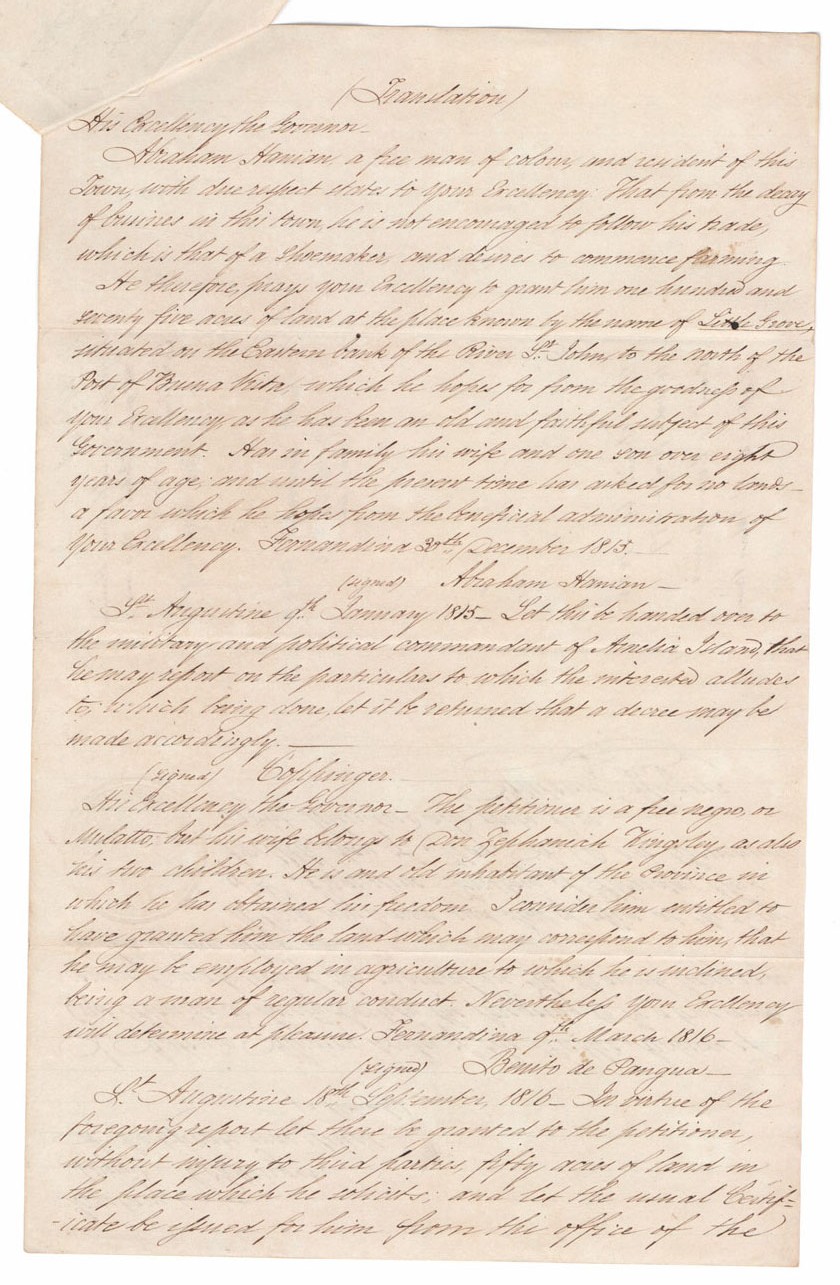 (Translation)
His Excellency the Governor—
Abraham Hanian a free man of colour, and resident of this
Town, with due respect states to Your Excellency: That from the decay
of busines in this town, he is not encouraged to follow his trade,
which is that of a Shoemaker, and desires to commence farming.
He therefore, prays your Excellency to grant him one hundred and
seventy five acres of land at the place known by the name of Little Grove,
situated on the Eastern bank of the River St. John, to the north of the
Post of Buena Vista, which he hopes for from the goodness of
your Excellency, as he has been an old and faithful subject of this
Government. Has in family his wife and one son over eight
years of age; and until the present time has asked for no lands—
a favor which he hopes from the beneficial administration of
Your Excellency. Fernandina 30th December 1815.
(signed) Abraham Hanian—
St. Augustine 9th January 1815— Let this be handed over to
the military and political commandant of Amelia Island, that
he may report on the particulars to which the interested alludes
to; which being done, let it be returned that a decree may be
made accordingly.
(signed) Coppinger.
His Excellency the Governor— The petitioner is a free negro, or
Mulatto, but his wife belongs to Don Zephaniah Kingsley, as also
his two children. He is and old inhabitant of the Province in
which he has obtained his freedom. I consider him entitled to
have granted him the land which may correspond to him, that
he may be employed in agriculture to which he is inclined,
being a man of regular conduct. Nevertheless Your Excellency
will determine at pleasure. Fernandina 9th March 1816—
(signed) Benito de Pangua—
St. Augustine 18th September, 1816— In virtue of the
foregoing report let there be granted to the petitioner,
without injury to third parties, fifty acres of land in
the place which he solicits; and let the usual Certif=
-icate be issued for him from the office of the